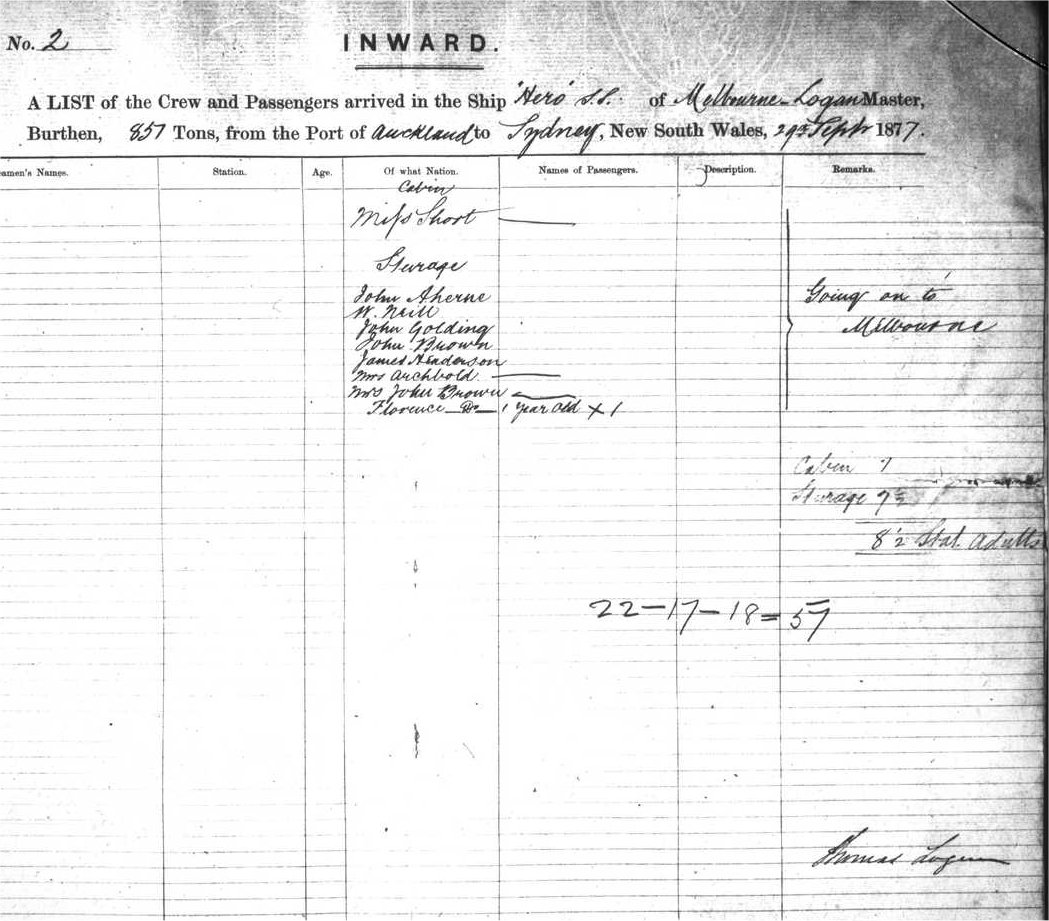 No. 2
INWARD.
A LIST of the Crew and Passengers arrived in the Ship "Hero" S.S. of Melbourne - Logan Master,
Burthen, 857 Tons, from the Port of Auckland to Sydney, New South Wales, 29th Septr 1877.
eamen's Names. Station. Age. Of what Nation. Names of Passengers. Description. Remarks.
Cabin
Miss Short
Sturage
John Aherne
W. Neill
John Golding
John Brown
James Henderson
Mrs Archbold
Mrs John Brown
Florence Do 1 year old X 1
Going on to
Melbourne
Cabin 1
Sturage 7½
8½ Stat. Adults
22-17-18=57
Thomas Logan